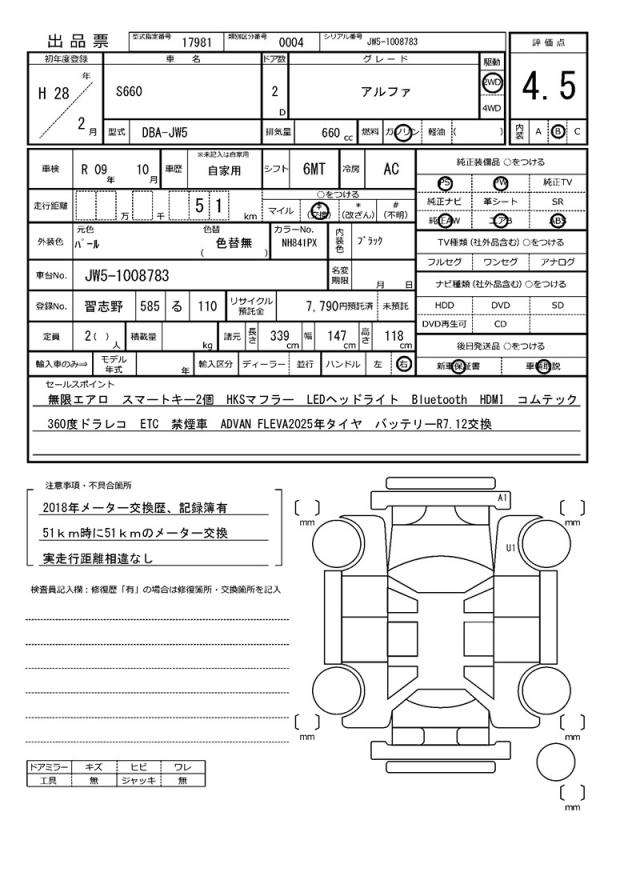 出品票 型式指定番号 17981 類別区分番号 0004 シリアル番号 JW5-1008783
評価点
4.5
初年度登録 車名 ドア数 グレード 駆動
H 28 年 2 月
S660 2 D アルファ 2WD 4WD
型式 DBA-JW5 排気量 660 cc 燃料 ガソリン 軽油 ( )
内装 A B C
車検 R 09 年 10 月 車歴 ※未記入は自家用 自家用 シフト 6MT 冷房 AC
走行距離 万 千 5 1 km
○をつける
マイル $ (交換) * (改ざん) # (不明)
外装色 元色 パール 色替 ( 色替無 ) カラーNo. NH841PX 内装色 ブラック
車台No. JW5-1008783 名変期限 月 日
登録No. 習志野 585 る 110 リサイクル預託金 7,790円預託済 未預託
定員 2( ) 人 積載量 kg 諸元 長さ 339 cm 幅 147 cm 高さ 118 cm
輸入車のみ⇒ モデル年式 年 輸入区分 ディーラー 並行 ハンドル 左 右
純正装備品 ○をつける
PS PW 純正TV
純正ナビ 革シート SR
純正AW エアB ABS
TV種類(社外品含む)○をつける
フルセグ ワンセグ アナログ
ナビ種類(社外品含む)○をつける
HDD DVD SD
DVD再生可 CD
後日発送品 ○をつける
新車保証書 車輌取説
セールスポイント
無限エアロ スマートキー2個 HKSマフラー LEDヘッドライト Bluetooth HDMI コムテック
360度ドラレコ ETC 禁煙車 ADVAN FLEVA2025年タイヤ バッテリーR7.12交換
注意事項・不具合箇所
2018年メーター交換歴、記録簿有
51km時に51kmのメーター交換
実走行距離相違なし
検査員記入欄：修復歴「有」の場合は修復箇所・交換箇所を記入
ドアミラー キズ ヒビ ワレ
工具 無 ジャッキ 無
A1
U1
mm
mm
mm
mm
mm